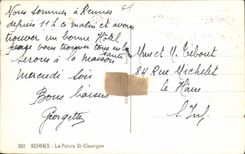 Nous sommes à Rennes
depuis 11h ce matin et avons
trouver un bonne Hôtel
vous trouver tous en
santé
serons à la maison
mercredi soir
Bons baisers
Georgette
Mme et M.
84 Rue Michelet
le Havre
S. Inf.
201 RENNES - Le Palais St-Georges